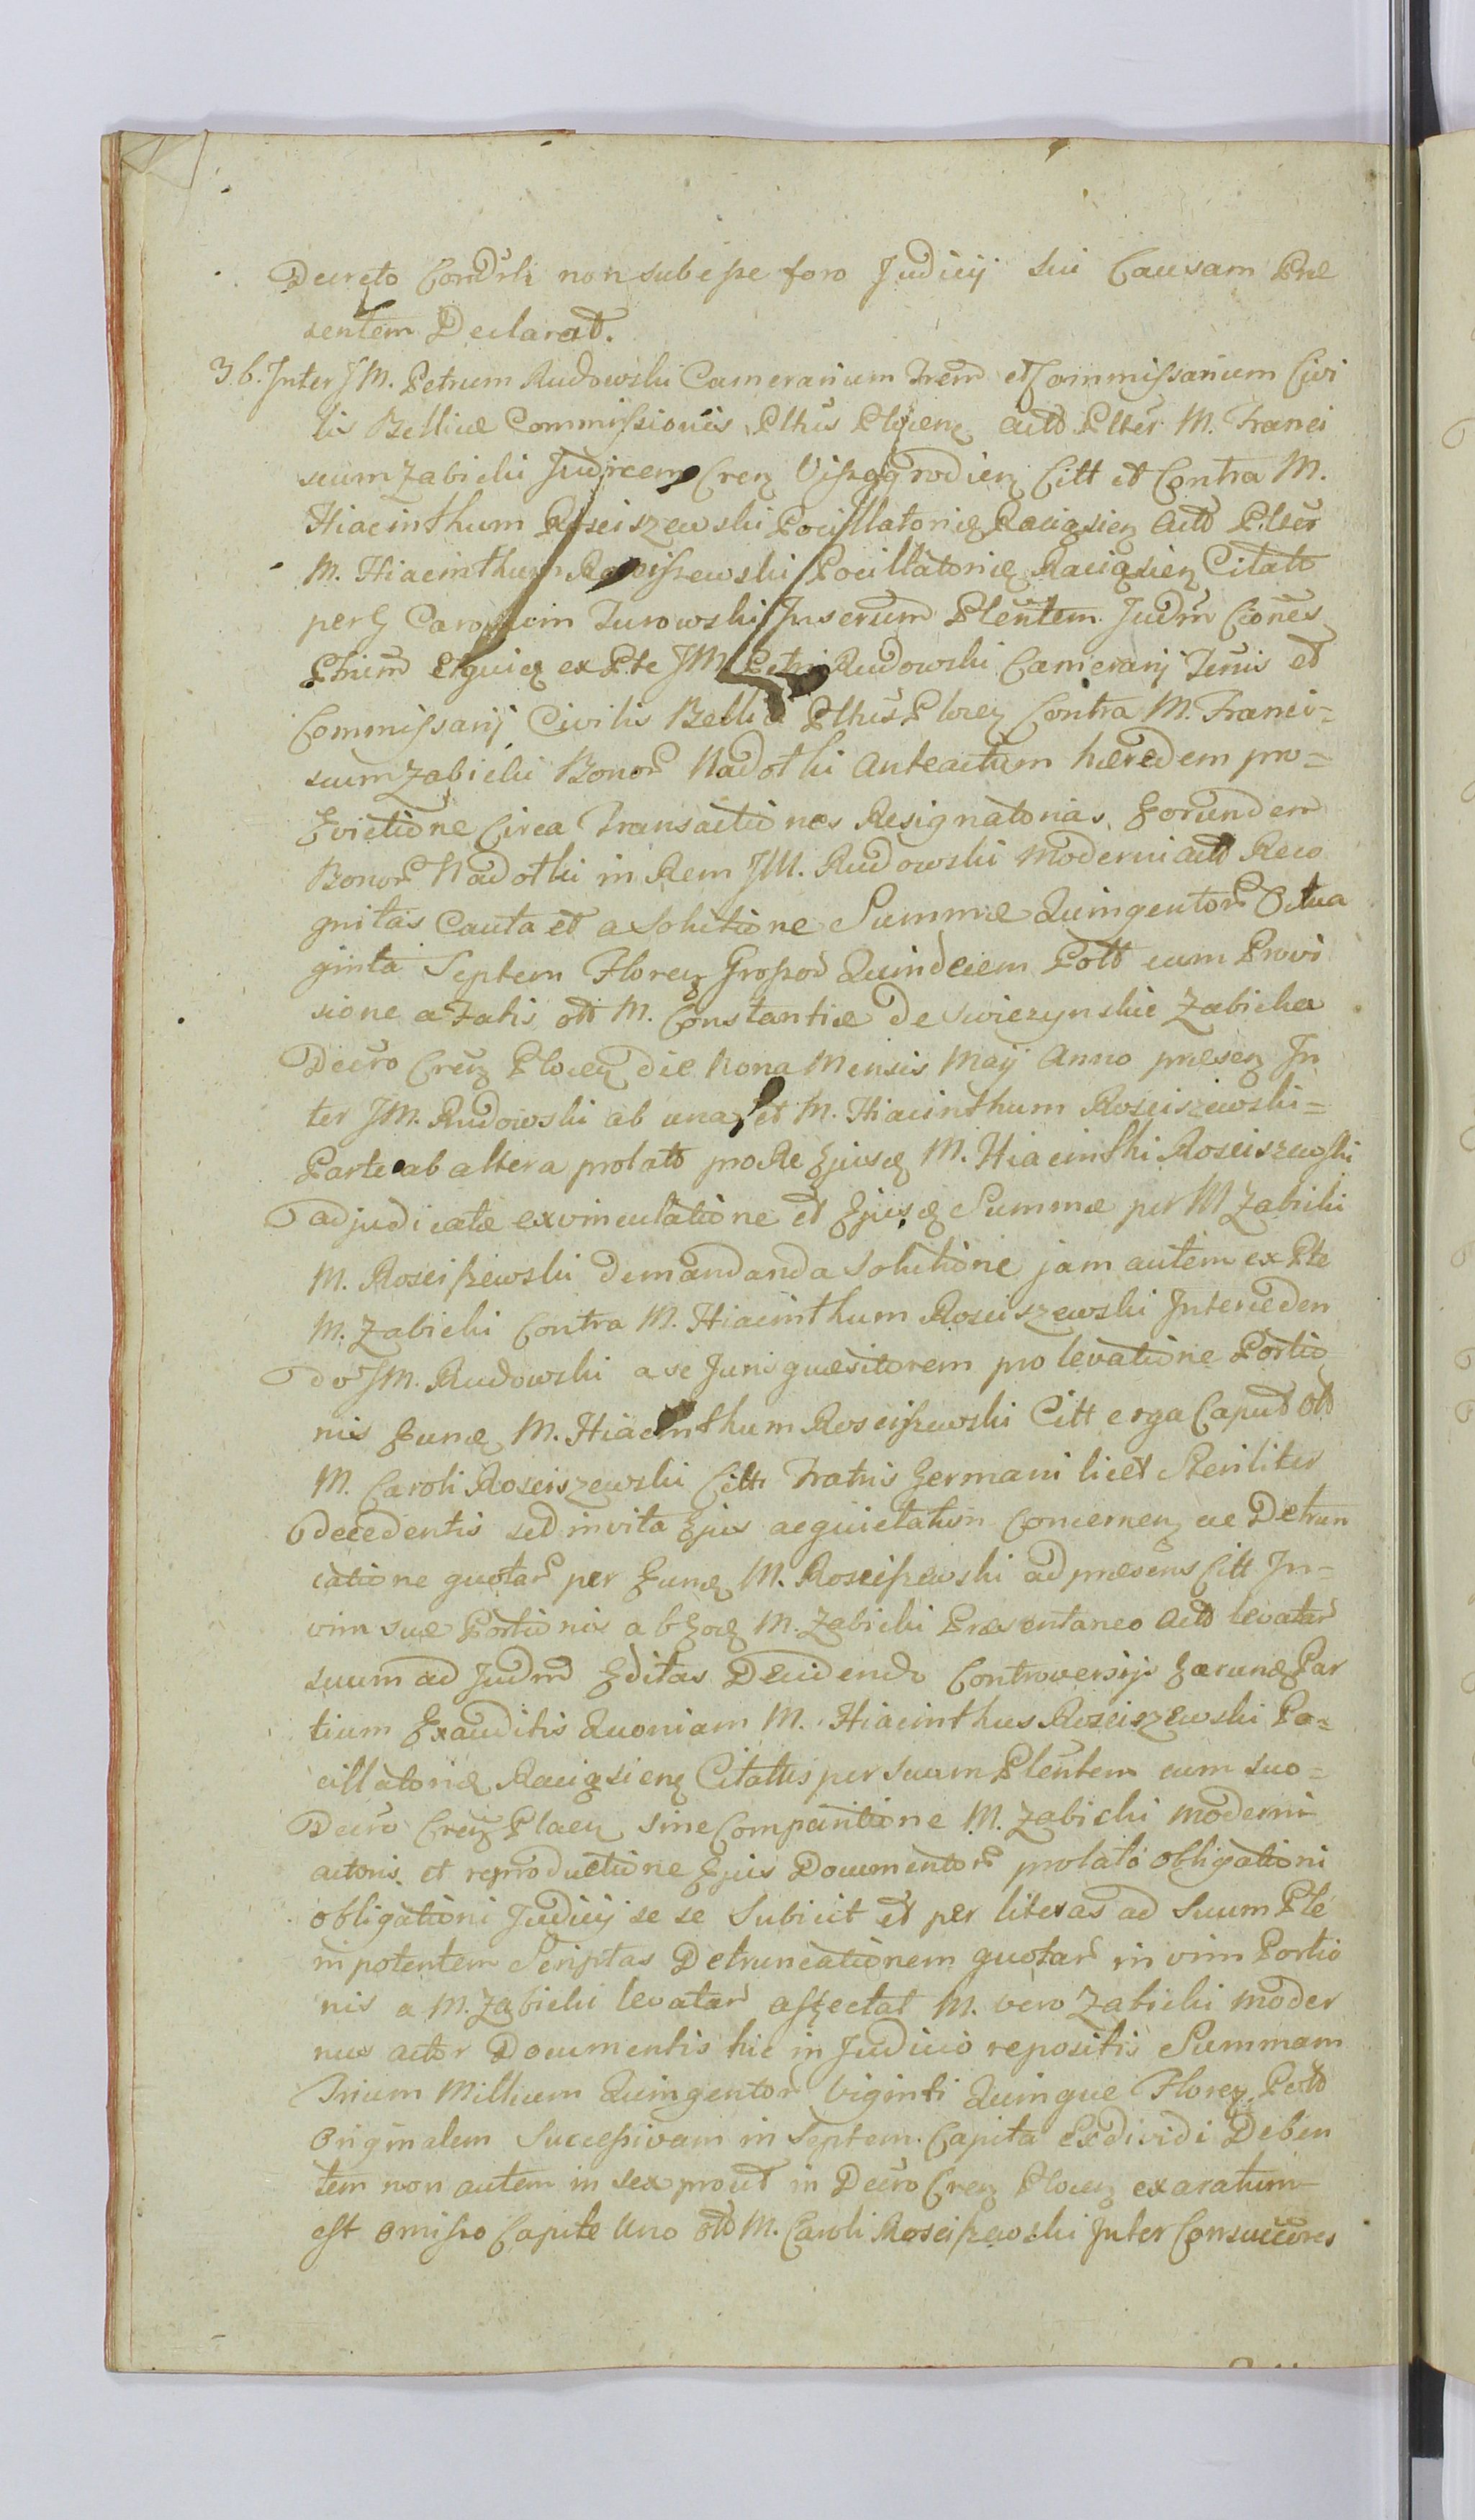 Decreto Condrli non subesse foro Judicij sui Causam Præ
sentem Declarat.
36. Inter JM. Petrum Rudowski Camerarium Trem et Commissarium Civi
lis Bellicæ Commissionis Pltus Plocen Actt Plter M. Franci
scum Zabicki Judicem Cren Viszogrodien Citt et Contra M.
Hiacinthum Rosciszewski Pocillatorię Raciązien Actt Plter
M. Hiacinthum Rosciszewski Pocillatorię Raciązien Citatt
per G Carolum Turowski Juserum Plentem Judm Ciones
Ptrium ex Pte JM. Petri Rudowski Camerarij Trris et
Commissarij Civilis Bellic Pltus Plocen Contra M. Franci=
scum Zabicki Bonor Nadotki Anteactum hæredem pro=
Evictione Circa Transactiones Resignatorias Eorundem
Bonor Nadotki in Rem JM. Rudowski Moderni Actt Reco
gnitas Cauta et a Solutione Summæ Quingentor Octua
ginta Septem Floren Grossod Quindecim Poltt cum Provi
sione a Fatis ott M. Constantiæ de Swiezynskie Zabicka
Decro Cren Plocen die Nona Mensis Maij Anno præsen In
ter JM. Rudowski ab una et M. Hiacinthum Rosciszewski=
Parte ab altera prolato pro Re Ejusd M. Hiacinthi Rosciszewski
adjudicatæ exvinculatione et Ejusd Summæ per M Zabicki
M. Rosciszewski demandanda Solutione jam autem ex Pte
M. Zabicki Contra M. Hiacinthum Rosciszewski Interceden
do JM. Rudowski a se Juris quæsitorem pro levatione Portio
nis Eund M. Hiacinthum Rosciszewski Citt erga Caput Ott
M. Caroli Rosciszewski Citt Fratris Germani licet Steriliter
decedentis sed in vita Ejus acquietatum Concernen ac Detrun
catione quotar per Eund M. Rosciszewski ad præsens Citt In=
vim suæ Portionis ab Eod M. Zabicki Præsentaneo Actt levatar
suum ad Judm Editas Decidendo Controversijs Earund Par
tium Exauditis Quoniam M. Hiacinthus Rosciszewski Po=
cillatorid Raciązieng Citatus per Suum Plentem cum suo=
Decro Cren Placen sine Comparitione M. Zabicki moderni
actoris et reproductione Ejus Documentor prolato obligationi
obligationi Judicij se se Subicit et per literas ad Suum Ple
nipotentem Scriptas Detruncationem quotar in vim Portio
nis a M. Zabicki levatar affectat M. vero Zabicki moder
nus actor Documentis hic in Judicio repositis Summam
Trium Millium Quingentor Viginti Quinque Floren Poltt
Originalem Successivam in Septem Capita Exdividi Deben
tem non autem in sex prout in Decro Cren Plocen exaratum
est omisso Capite Uno ott M. Caroli Rosciszewski Inter Consuccores